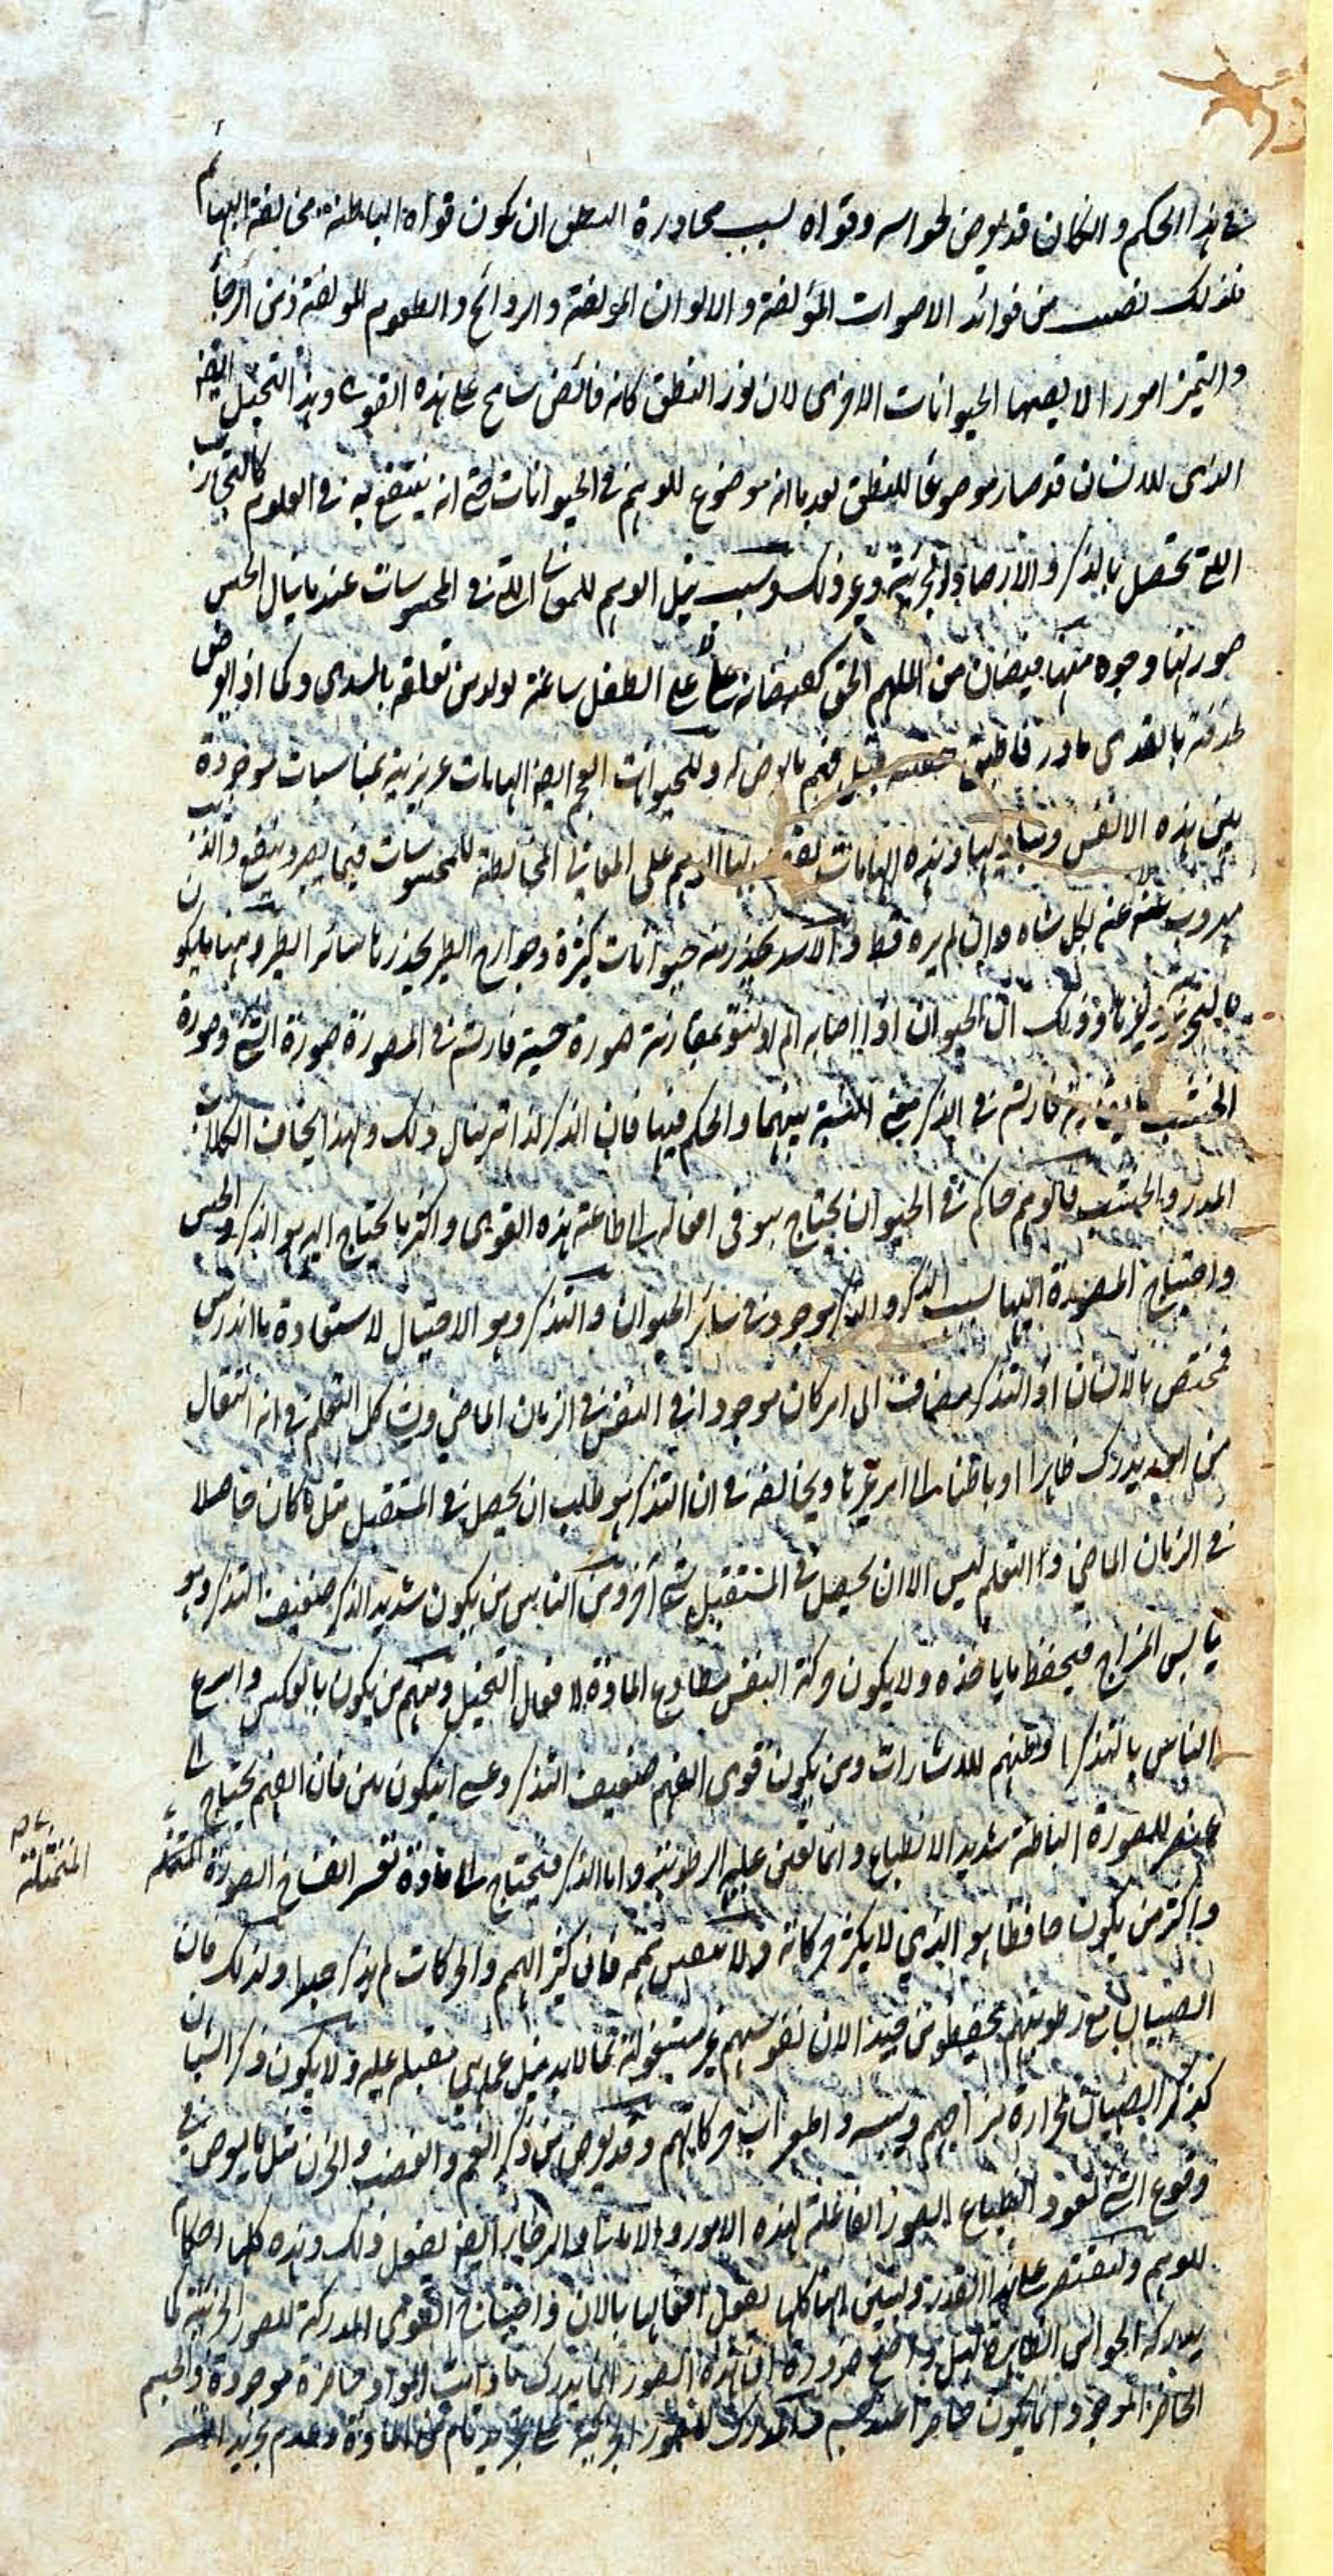 في هذا الحكم والكان قد يعرض لحواسه وقواه بسبب مجاورة النطق ان يكون قواه الباطنة مخالفة البهائم
فلذلك نصيب من فوائد الاصوات المؤلفة والالوان المؤلفة والروائح والطعوم المؤلفة ومن الرجاء
والتمني امورا لا يصيبها الحيوانات الاخرى لان نور النطق كانه فائض سانح على هذه القوى وهذا التخيل ايضا
الذي للانسان قد صار موضوعا للنطق بعد ما انه موضوع للوهم في الحيوانات حتى انه ينتفع به في العلوم كالتجارب
التي تحصل بالذكر والارصاد الجزئية وغير ذلك وسبب نيل الوهم للمعاني التي في المحسوسات عند ما ينال الحس
صورتها وجوه منها فيضان من الملهم الحق كفيضانه على الطفل ساعة يولد من تعلقه بالثدي وكما اذا تعرض
لحدقته بالقذى بادر فاطبق جفنه قبل فهم ما يعرض له وللحيوانات العجم ايضا الهامات غريزية بمناسبات موجودة
بين هذه الانفس ومباديها وهذه الهامات يقف بها الوهم على المعاني المخالطة للمحسوسات فيما يضر وينفع والذئب
مهروب عنه غنم لكل شاة وان لم يره قط والاسد يحذر منه حيوانات كثيرة وجوارح الطير يحذرها سائر الطير ومنها ما يكون
بالتجربة وغيرها وذلك ان الحيوان اذا اصابه الم او لذة بمقارنة صورة حسية فارتسم في المصورة صورة الشيء وصورة
ما يقارنه فارتسم في الذكر معنى النسبة بينهما والحكم فيها فان الذكر لذاته ينال ذلك ولهذا يخاف الكلاب
المدر والخشب فالوهم حاكم في الحيوان يحتاج هو في افعاله الى اطاعة هذه القوى واكثر ما يحتاج اليه هو الذكر والحس
واحتياج المصورة اليها بسبب الذكر والذكر موجود في سائر الحيوان والتذكر وهو الاحتيال لاستعادة ما اندرس
فمختص بالانسان اذ التذكر مضاف الى امر كان موجودا في النفس في الزمان الماضي ويشاكل التعلم في انه انتقال
من امور يدرك ظاهرا او باطنا الى امر غيرها ويخالفه في ان التذكر هو طلب ان يحصل في المستقبل مثل ما كان حاصلا
في الزمان الماضي والتعلم ليس الا ان يحصل في المستقبل شيء آخر ومن الناس من يكون شديد الذكر ضعيف التذكر وهو
يابس المزاج فيحفظ ما ياخذه ولا يكون حركة النفس مطاوع المادة لافعال التخيل ومنهم من يكون بالعكس واسرع
الناس بالتذكر افطنهم للاشارات ومن يكون قوي الفهم ضعيف التذكر وعسى ان يكون من فان الفهم يحتاج الى
عنصر للصورة الباطنة شديد الانطباع وانما تعين عليه الرطوبة واما الذكر فيحتاج الى مادة تعسر انفساخ الصورة المتخيلة
واكثر من يكون حافظا هو الذي لا يكثر حركاته ولا هممه فان كثير الهمم والحركات لم يذكر جيدا ولذلك فان
الصبيان مع رطوبتهم يحفظون جيدا لان نفوسهم غير مشغولة بما لا بد مثل عما هي مقبلة عليه ولا يكون ذكر الشبان
كذكر الصبيان لحرارة مزاجهم ويبسه واضطراب حركاتهم وقد يعرض من ذكر الغم والغضب والحزن مثل ما يعرض في
وقوع الشيء لعود انطباع الصور الفاعلة لهذه الامور والاماني والرجاء ايضا يفعل ذلك وهذه كلها احكام
للوهم ولنقتصر على هذا القدر ولنبين انها كلها يفعل افعالها بالات واحتياج القوى المدركة للصور الجزئية كما
يدركه الحواس الظاهرة سهل واضح ضرورة ان هذه الصور انما يدرك ما دامت المواد حاضرة موجودة والجسم
الحاضر الموجود انما يكون حاضرا عند جسم والمدرك للصور الجزئية على تجريد تام من المادة وعدم تجريد
المتخيلة